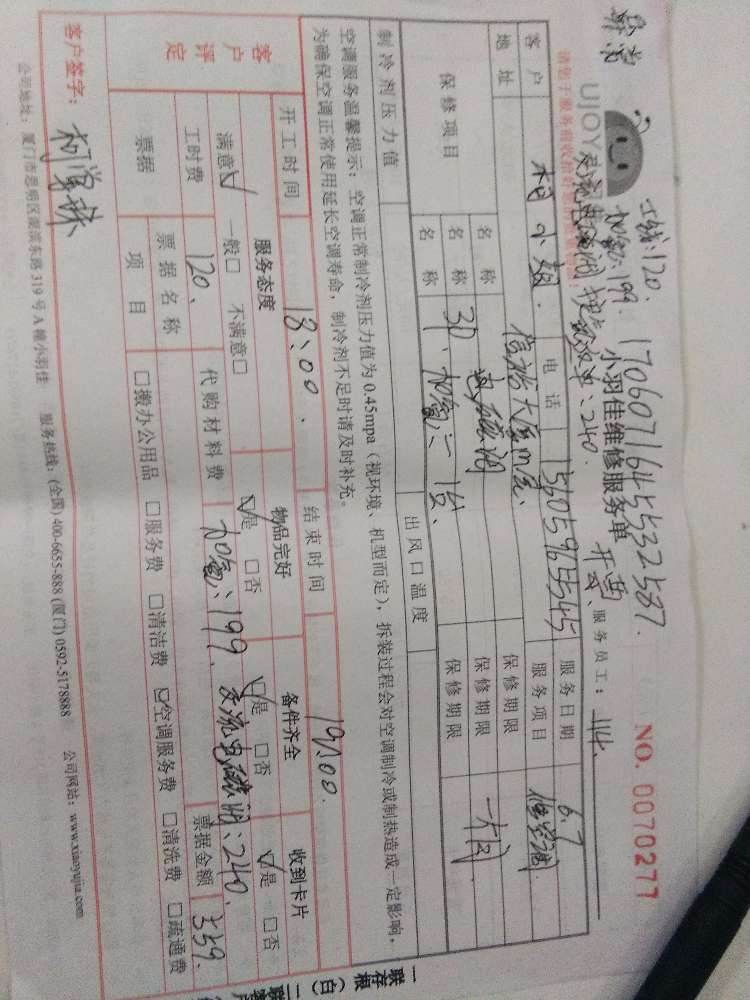 工钱:120.
加氟:199.
17060716455532587.
交流电磁阀:240.
UJOY
小羽佳维修服务单
开票
服务员工:114.
NO. 0070277
客户 柯小姐. 电话 15605965545 服务日期 6.7
地址 信裕大厦 服务项目 修空调
保修项目 名称 交流电磁阀 保修期限
名称 3P、加氟、一台、 保修期限 一个月
名称 保修期限
制冷剂压力值 出风口温度
空调服务温馨提示:空调正常制冷剂压力值为0.45mpa(视环境、机型而定),拆装过程会对空调制冷或制热造成一定影响,
为确保空调正常使用延长空调寿命,制冷剂不足时请及时补充。
开工时间 18:00. 结束时间 19:00.
客户评定 服务态度 物品完好 备件齐全 收到卡片
满意☑ 一般□ 不满意□ ☑是 □否 ☑是 □否 ☑是 □否
工时费 120. 代购材料费 加氟:199 交流电磁阀:240.
票据 票据名称 票据金额 559.
项目 □搬办公用品 □服务费 □清洁费 ☑空调服务费 □清洗费 □疏通费
客户签字:
公司地址:厦门市思明区湖滨东路319号A幢小羽佳 服务热线:(全国) 400-6655-888 (厦门) 0592-5178888 公司网站:www.xiaoyujia.com